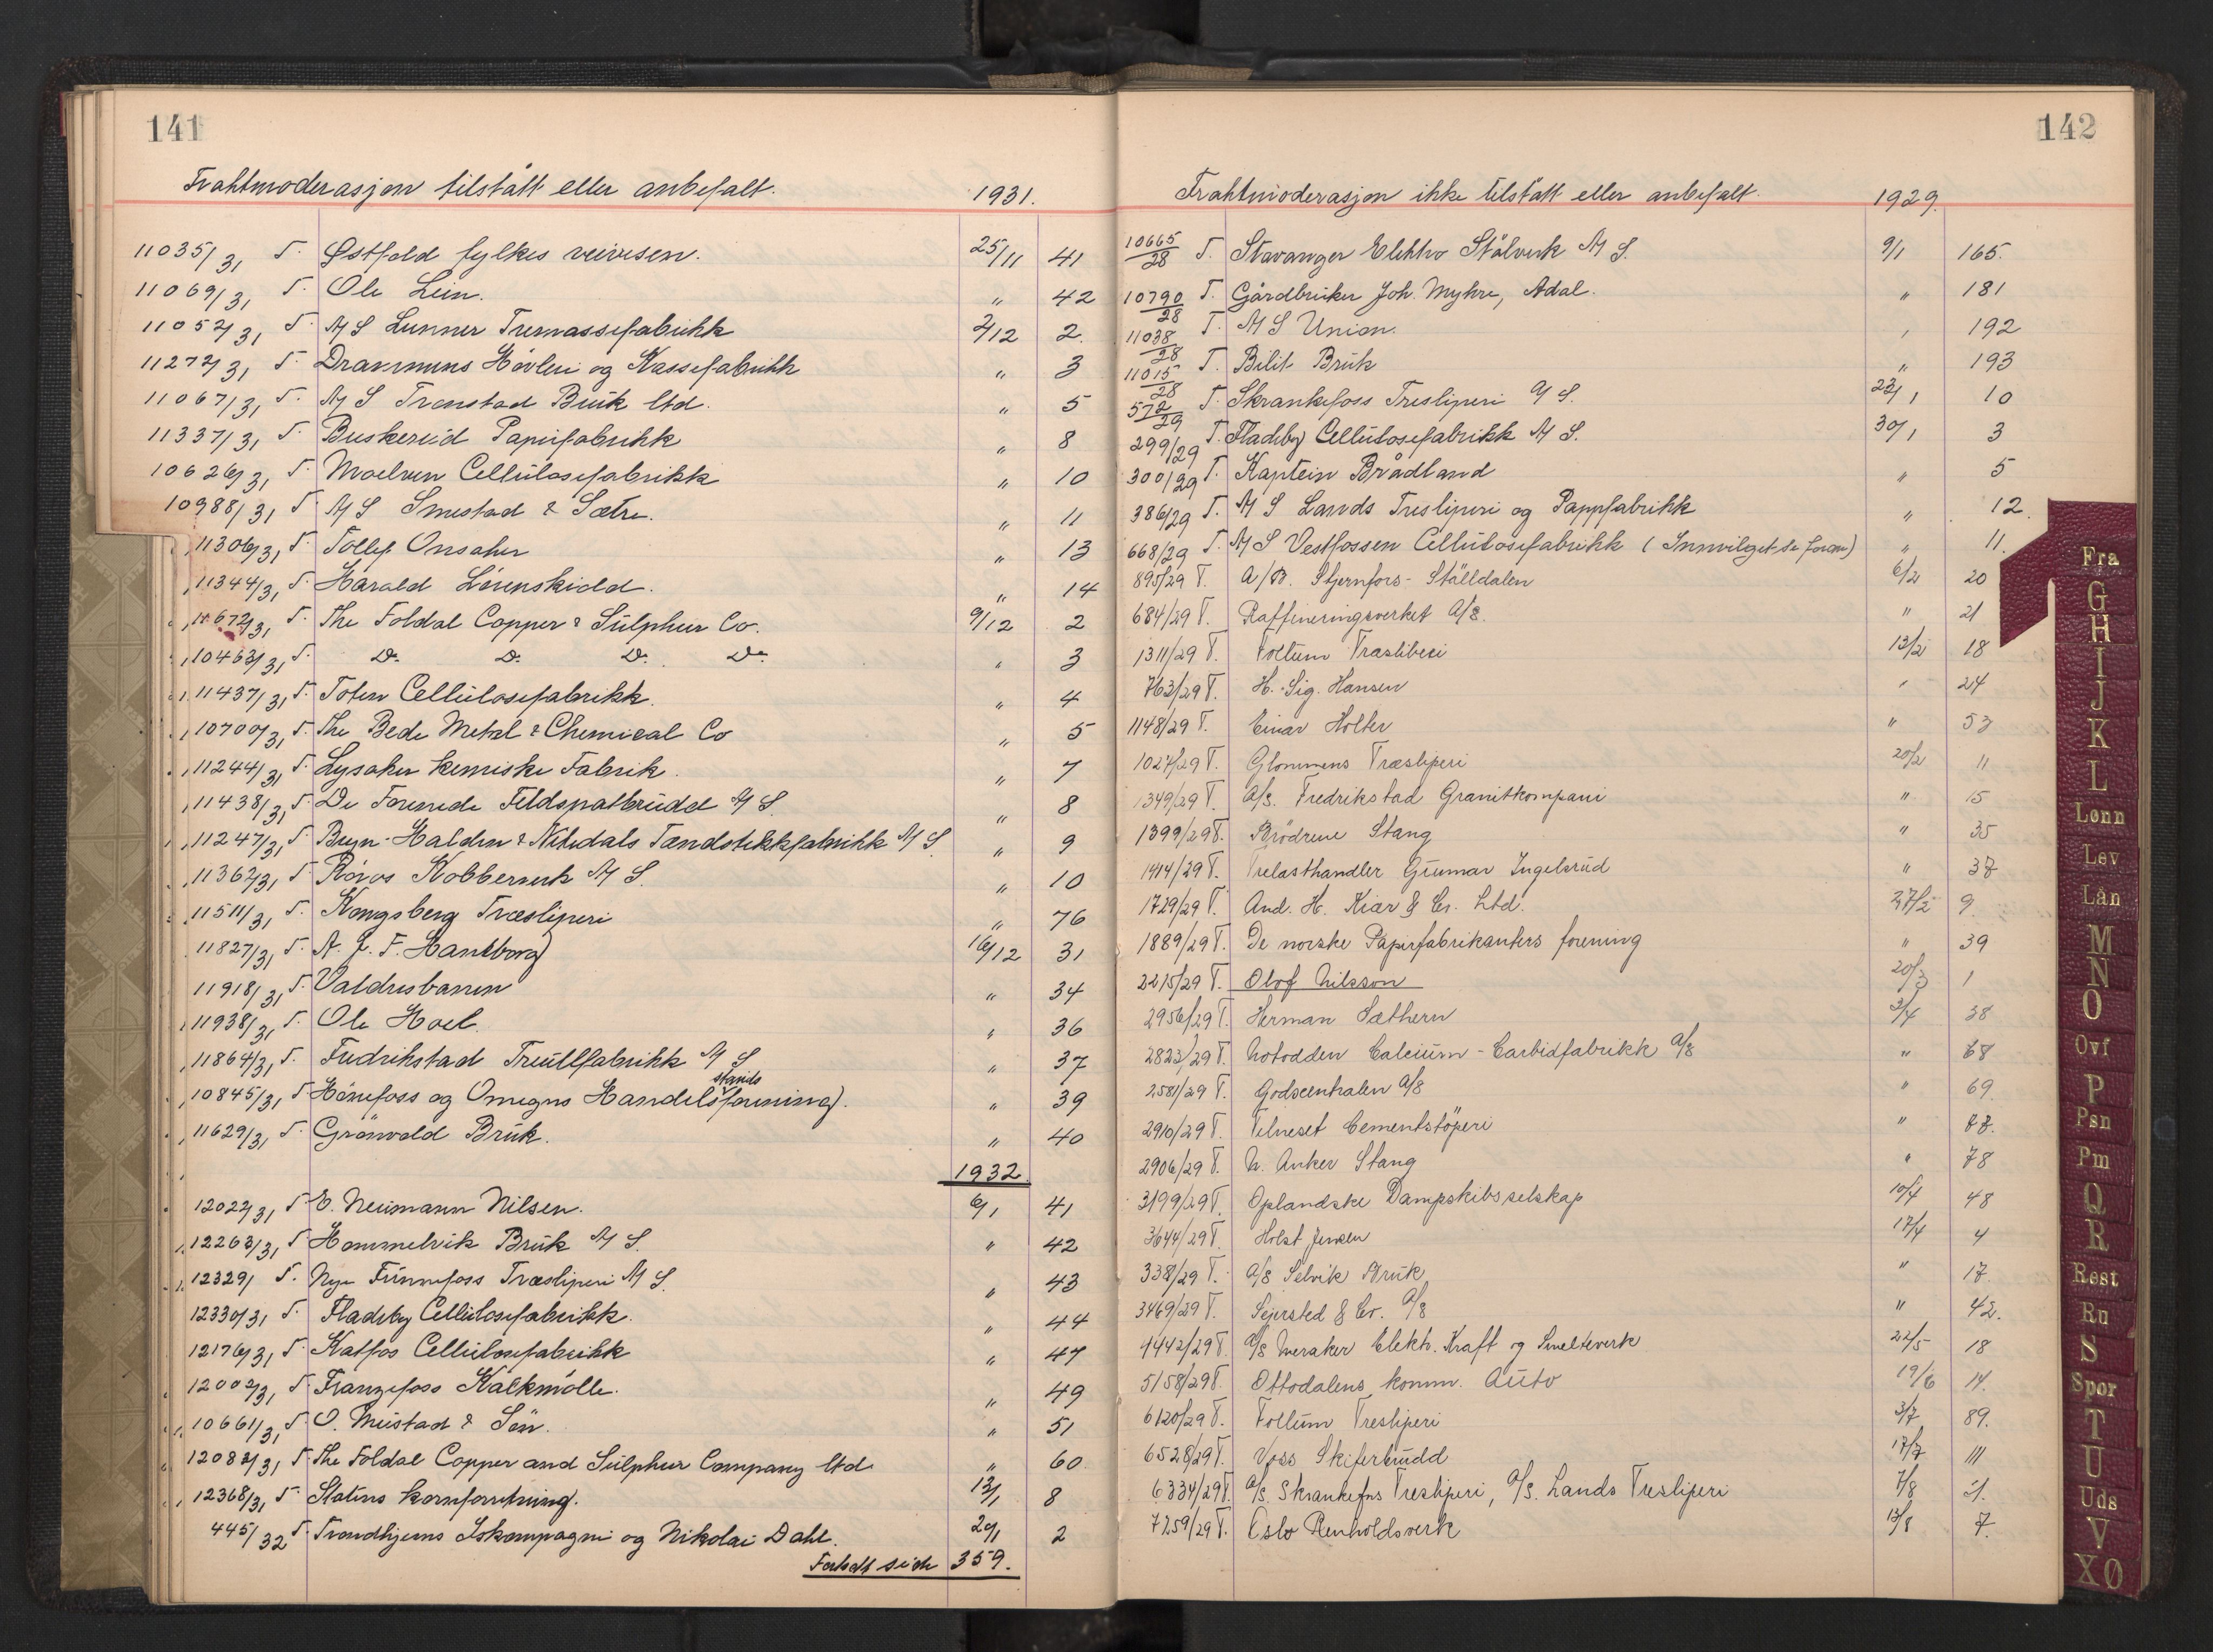 141
Frahtmoderasjon tilstått eller anbefalt. 1931.
11035/31 T. Østfold fylkes veivesen. 25/11 41
11069/31 T. Ole Lein. " 42
11052/31 T. A/S Lunner Tremassefabrikk 2/12 2.
11272/31 T. Drammens Høvleri og Kassefabrikk " 3
11067/31 T. A/S Trenstad Bruk ltd. " 5
11337/31 T. Buskerud Papirfabrikk " 8
10626/31 T. Moelven Cellulosefabrikk " 10
10988/31 T. A/S Smestad & Sætre. " 11
11306/31 T. Tollef Onsaker " 13
11344/31 T. Harald Lörenskiold. " 14
11672/31 T. The Foldal Copper & Sulphur Co. 9/12 2
10463/31 T. Do. Do. Do. Do. " 3
11437/31 T. Toten Cellulosefabrikk. " 4
10700/31 T. The Bede Metal & Chemical Co " 5
11244/31 T. Lysaker kemiske Fabrik. " 7
11438/31 T. De Forenede Feldspatbrudd A/S " 8
11247/31 T. Bryn-Halden & Nitedals Tændstikkfabrikk A/S. " 9
11362/31 T. Röros Kobberverk A/S. " 10
11511/31 T. Kongsberg Træsliperi " 76
11827/31 T. A. J. F. Hantborg 16/12 31
11918/31 T. Valdresbanen " 34
11938/31 T. Ole Hoel. " 36
11864/31 T. Fredrikstad Treullfabrikk A/S " 37
10845/31 T. Hönefoss og Omegns Handelsstandsforening. " 39
11629/31 T. Grönvold Bruk. " 40
1932.
12022/31 T. E. Neumann Nilsen. 6/1 41
12263/31 T. Hommelvik Bruk A/S. " 42
12329/ T. Nye Funnefoss Træsliperi A/S. " 43
12330/31 T. Fladeby Cellulosefabrikk. " 44
12176/31 T. Katfos Cellulosefabrikk " 47
12002/31 T. Franzefoss Kalkmölle. " 49
10661/31 T. O. Mustad & Sön. " 51
12082/31 T. The Foldal Copper and Sulphur Company ltd. " 60.
12368/31 T. Statens kornforretning. 13/1 8
445/32 T. Trondhjems Iskompagni og Nikolai Dahl. 20/1 2
Fortsatt side 359.
142
Frahtmoderasjon ikke tilstått eller anbefalt. 1929.
10665/28 T. Stavanger Elektro Stålverk A/S. 9/1 165.
10790/28 T. Gårdbruker Joh. Myhre, Ådal. " 181
11038/28 T. A/S Union. " 192
11015/28 T. Bilit Bruk " 193
572/29 T. Skrankefoss Tresliperi A/S. 23/1 10
299/29 T. Fladeby Cellulosefabrikk A/S. 30/1 3
300/29 T. Kaptein Brådland " 5
386/29 T. A/S Lands Tresliperi og Pappfabrikk " 12.
668/29 T. A/S Vestfossen Cellulosefabrikk (Innvilget se foran) " 11.
895/29 T. A/B. Stjernfors-Ställdalen 6/2 20
684/29 T. Raffineringsverket A/S. " 21
1311/29 T. Follum Træsliberi 13/2 18
763/29 T. H. Sig. Hansen " 24
1148/29 T. Einar Holter " 53
1027/29 T. Glommens Træsliperi 20/2 11
1349/29 T. A/S. Fredrikstad Granitkompani " 15
1399/29 T. Brödrene Stang " 35
1414/29 T. Trelasthandler Gunnar Ingelsrud " 37
1729/29 T. And. H. Kiær & Co. Ltd. 27/2 9.
1889/29 T. De norske Papirfabrikanters forening " 39
2215/29 T. Olof Nilsson 20/3 1
2956/29 T. Herman Sæthern 3/4 38
2823/29 T. Notodden Calcium-Carbidfabrikk A/S " 68
2581/29 T. Godscentralen A/S " 69.
2910/29 T. Vilneset Cementstöperi "
2906/29 T. N. Anker Stang " 78
3199/29 T. Oplandske Dampskibsselskap 10/4 48
3644/29 T. Holst Jensen 17/4 4
338/29 T. A/S Selvik Bruk " 17.
3469/29 T. Sejersted & Co. A/S " 42.
4442/29 T. A/S Meraker Elektr. Kraft og Smelteverk 22/5 18
5158/29 T. Ottodalens komm. Auto 19/6 14.
6120/29 T. Follum Tresliperi 3/7 89.
6528/29 T. Voss Skiferbrudd 17/7 111
6334/29 T. A/S. Skrankefos Tresliperi, A/S. Lands Tresliperi 7/8
7259/29 T. Oslo Renholdsverk 13/8 7.
Fra
G
H
I
J
K
L
Lønn
Lev
Lån
M
N
O
Ovf
P
Psn
Pm
Q
R
Rest
Ru
S
Spor
T
U
Uds
V
XØ